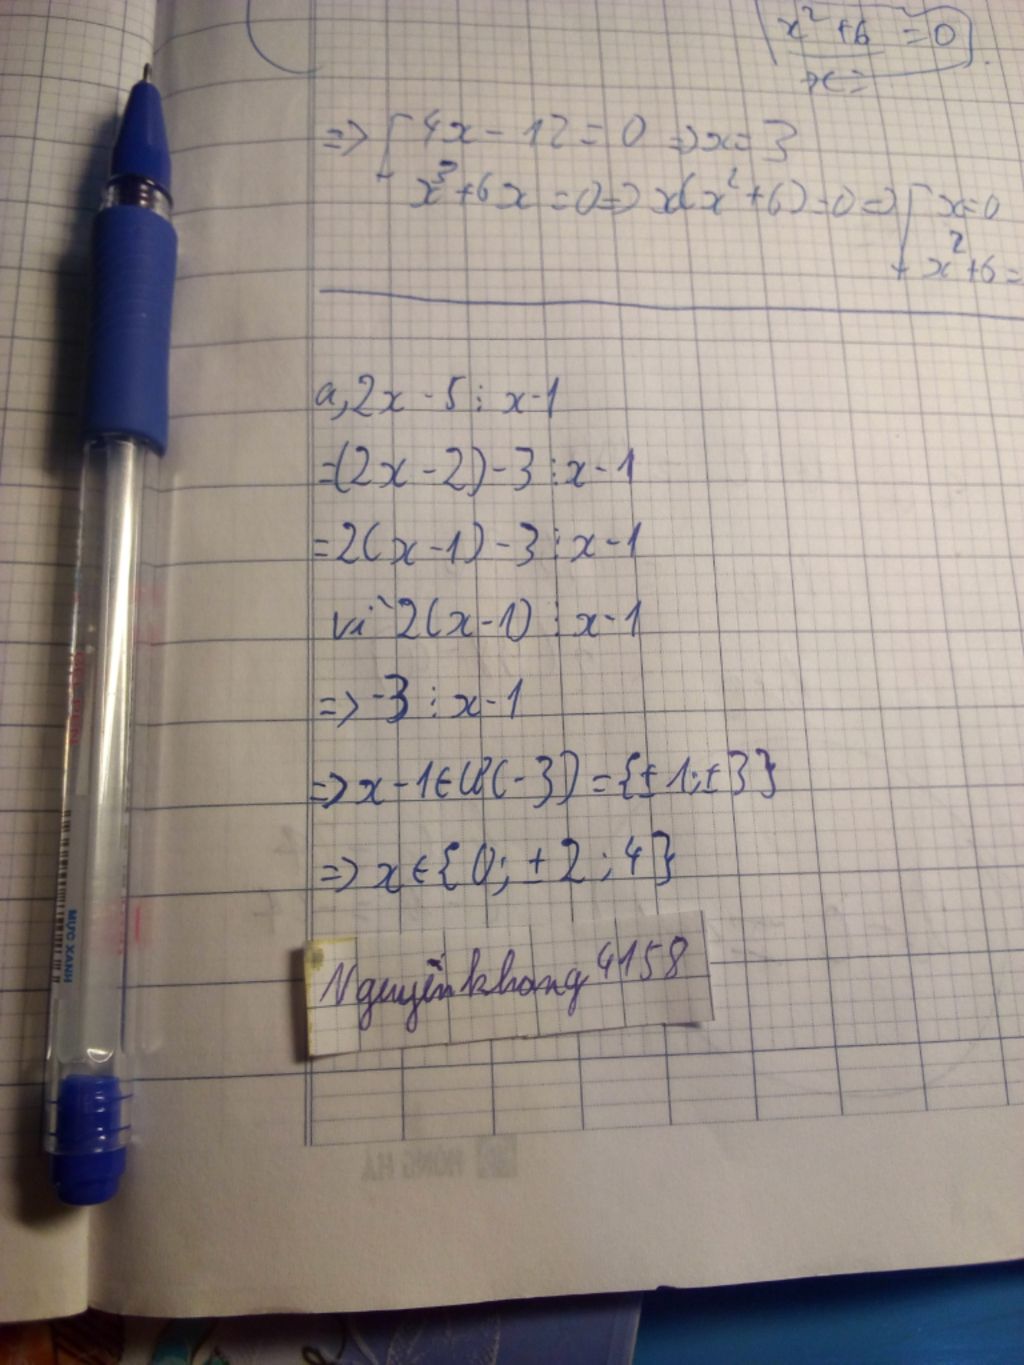 x² + 6 = 0
x =
=> [ 4x - 12 = 0 => x = 3
x³ + 6x = 0 => x(x² + 6) = 0 => [ x = 0
x² + 6 =
a, 2x - 5 ⋮ x - 1
= (2x - 2) - 3 ⋮ x - 1
= 2(x - 1) - 3 ⋮ x - 1
vì 2(x - 1) ⋮ x - 1
=> -3 ⋮ x - 1
=> x - 1 ∈ Ư(-3) = {± 1; ± 3}
=> x ∈ {0; ± 2; 4}
Nguyễn khang 4158
MỰC XANH
HỒNG HÀ